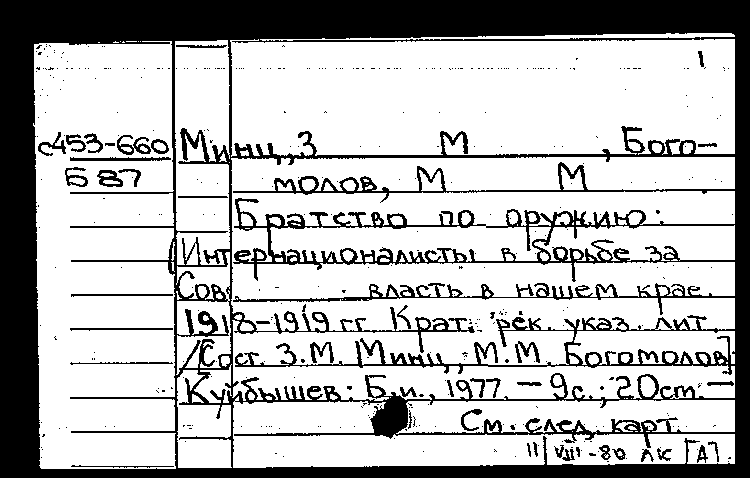 1
с453-660 Минц, З М , Бого-
Б 87 молов, М М
Братство по оружию:
(Интернационалисты в борьбе за
Сов. власть в нашем крае.
1918-1919 гг. Крат. рек. указ. лит.
/[Сост. З.М. Минц, М.М. Богомолов]
Куйбышев: Б.и., 1977. — 9с.; 20см. —
См. след. карт.
11/VIII-80 лк [А]